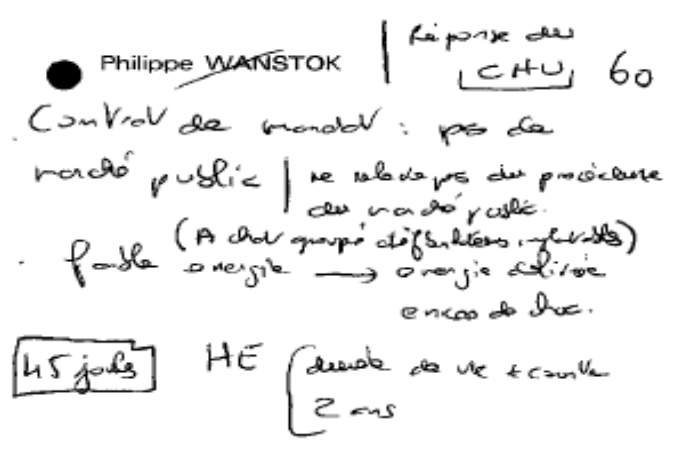 Réponse du
Philippe WANSTOK
CHU 60
Contrat de mandat : pas de
marché public | ne relève pas du procédure
du marché public.
(Achat groupé défibrillateurs implantables)
faible énergie → énergie délivrée
en cas de choc.
45 jours HE durée de vie
2 ans